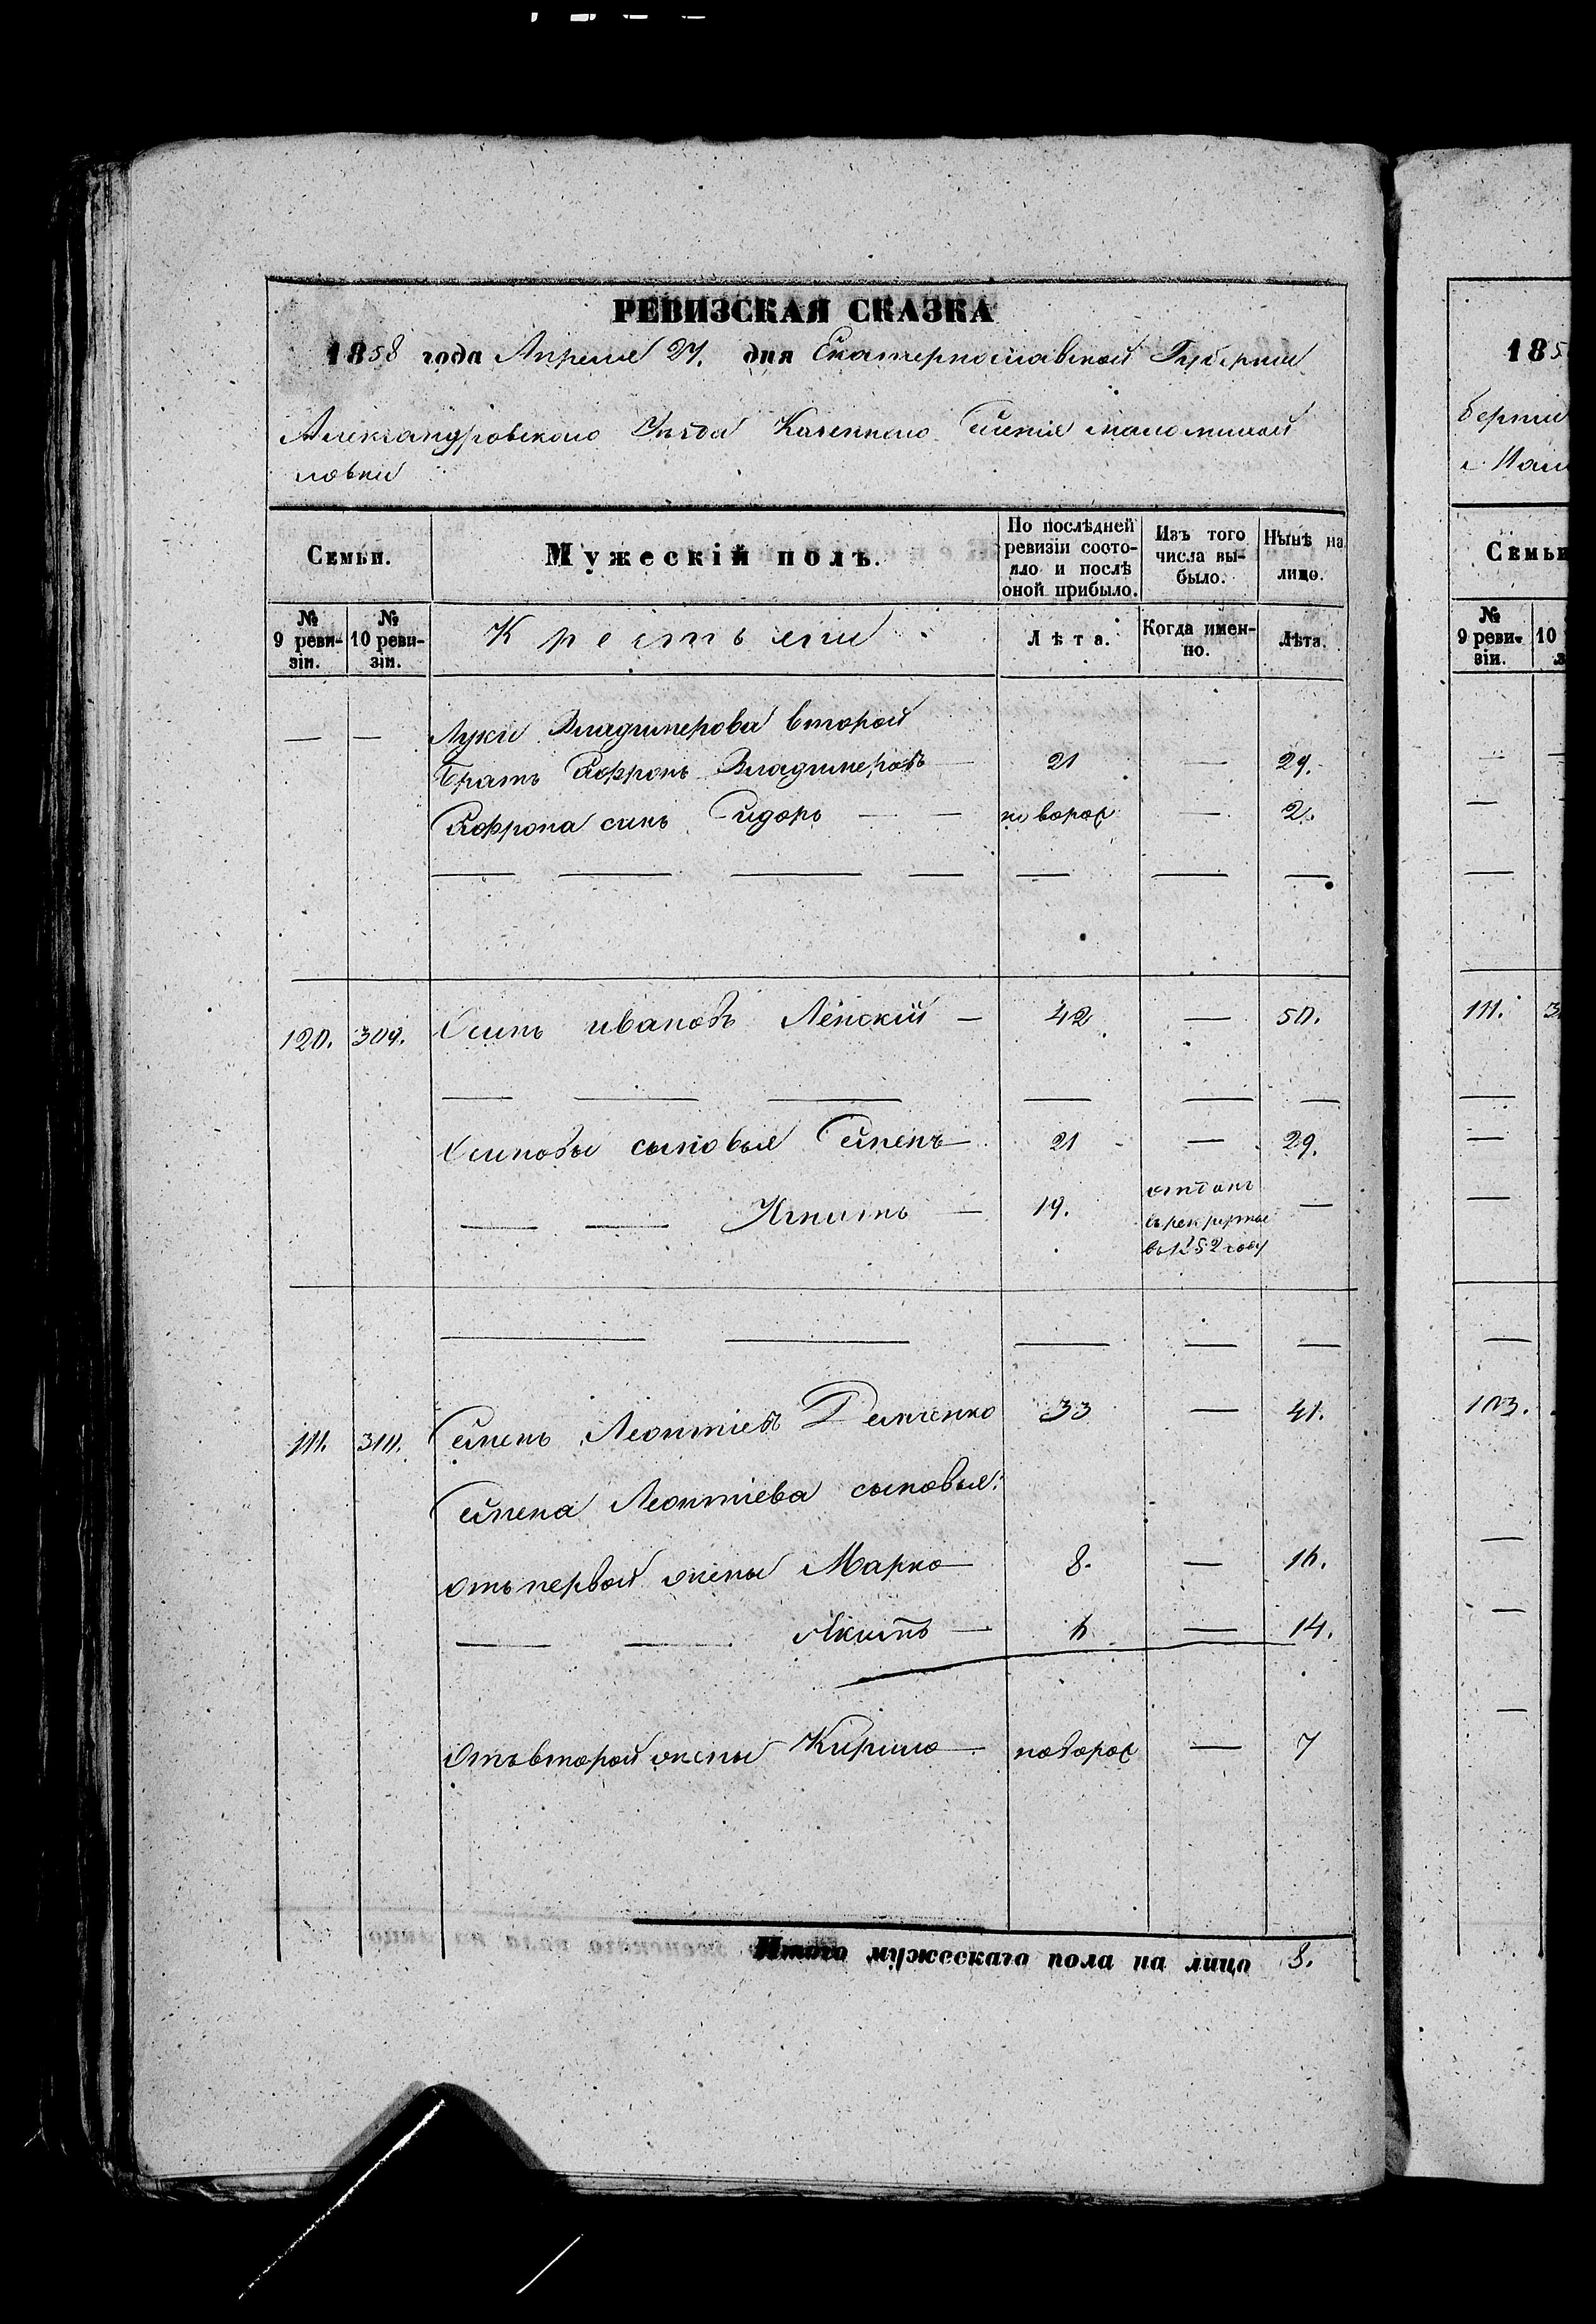 РЕВИЗСКАЯ СКАЗКА
1858 года Апреля 27. дня Екатеринославской Губернии
Александровского Уезда Казенного Селения
ловки
Семьи. Мужескій полъ. По послѣдней ревизіи состояло и послѣ оной прибыло. Изъ того числа выбыло. Нынѣ на лицо.
№ 9 ревизіи. № 10 ревизіи. Крестьяне Лѣта. Когда именно. Лѣта.
— — Луки Владимерова второй
братъ Софронъ Владимеровъ — 21 — 29.
Софрона синъ Сидоръ — — новорож — 2.
120. 309. Осипъ ивановъ Ленскій — 42 — 50.
Осиповы сыновья Семенъ — 21 — 29.
— — Игнатъ — 19. отданъ въ рекруты въ 1852 году —
111. 310. Семенъ Леонтіевъ Демченко 33 — 41.
Семена Леонтіева сыновья:
отъ первой жены Марко — 8. — 16.
— — Акимъ — 6 — 14.
Отъ второй жены Кирило — новорож — 7
Итого мужескаго пола на лицо 8.
185
берніи
Семьи
№ 9 ревизіи. 10
111. 3
103.